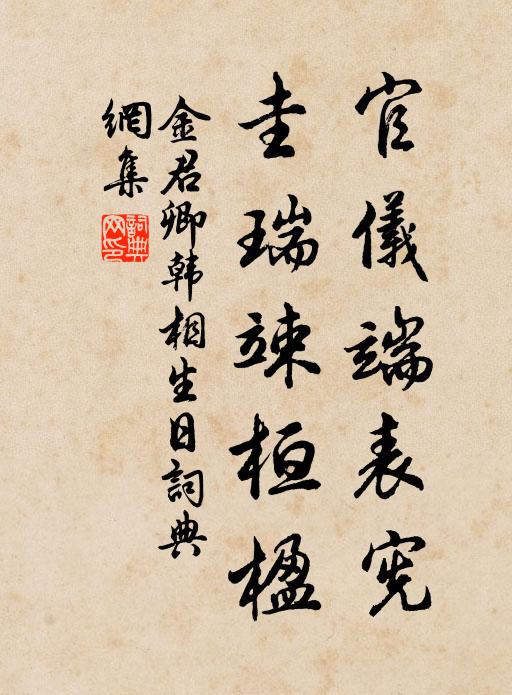 官儀端表宪
圭瑞竦桓楹
金君卿韩相生日詞典
網集
詞典網印